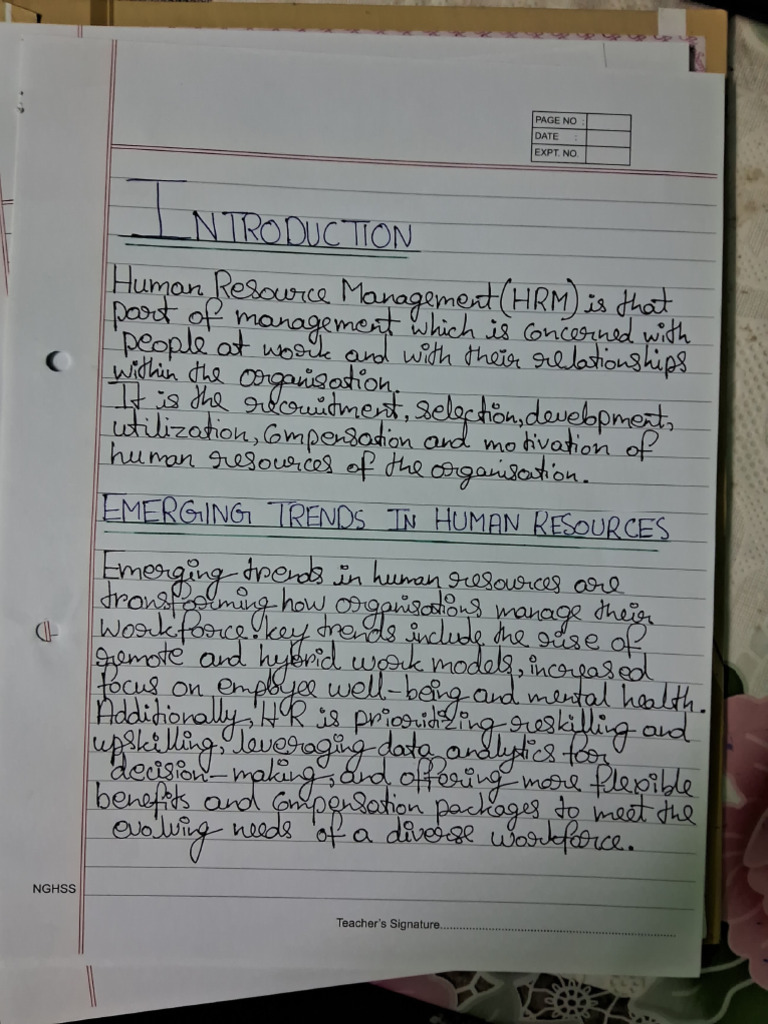 PAGE NO :
DATE :
EXPT. NO.
INTRODUCTION
Human Resource Management (HRM) is that
part of management which is concerned with
people at work and with their relationships
within the organisation.
It is the recruitment, selection, development,
utilization, compensation and motivation of
human resources of the organisation.
EMERGING TRENDS IN HUMAN RESOURCES
Emerging trends in human resources are
transforming how organisations manage their
workforce. key trends include the rise of
remote and hybrid work models, increased
focus on employee well-being and mental health.
Additionally, HR is prioritizing reskilling and
upskilling, leveraging data analytics for
decision-making, and offering more flexible
benefits and compensation packages to meet the
evolving needs of a diverse workforce.
NGHSS
Teacher's Signature